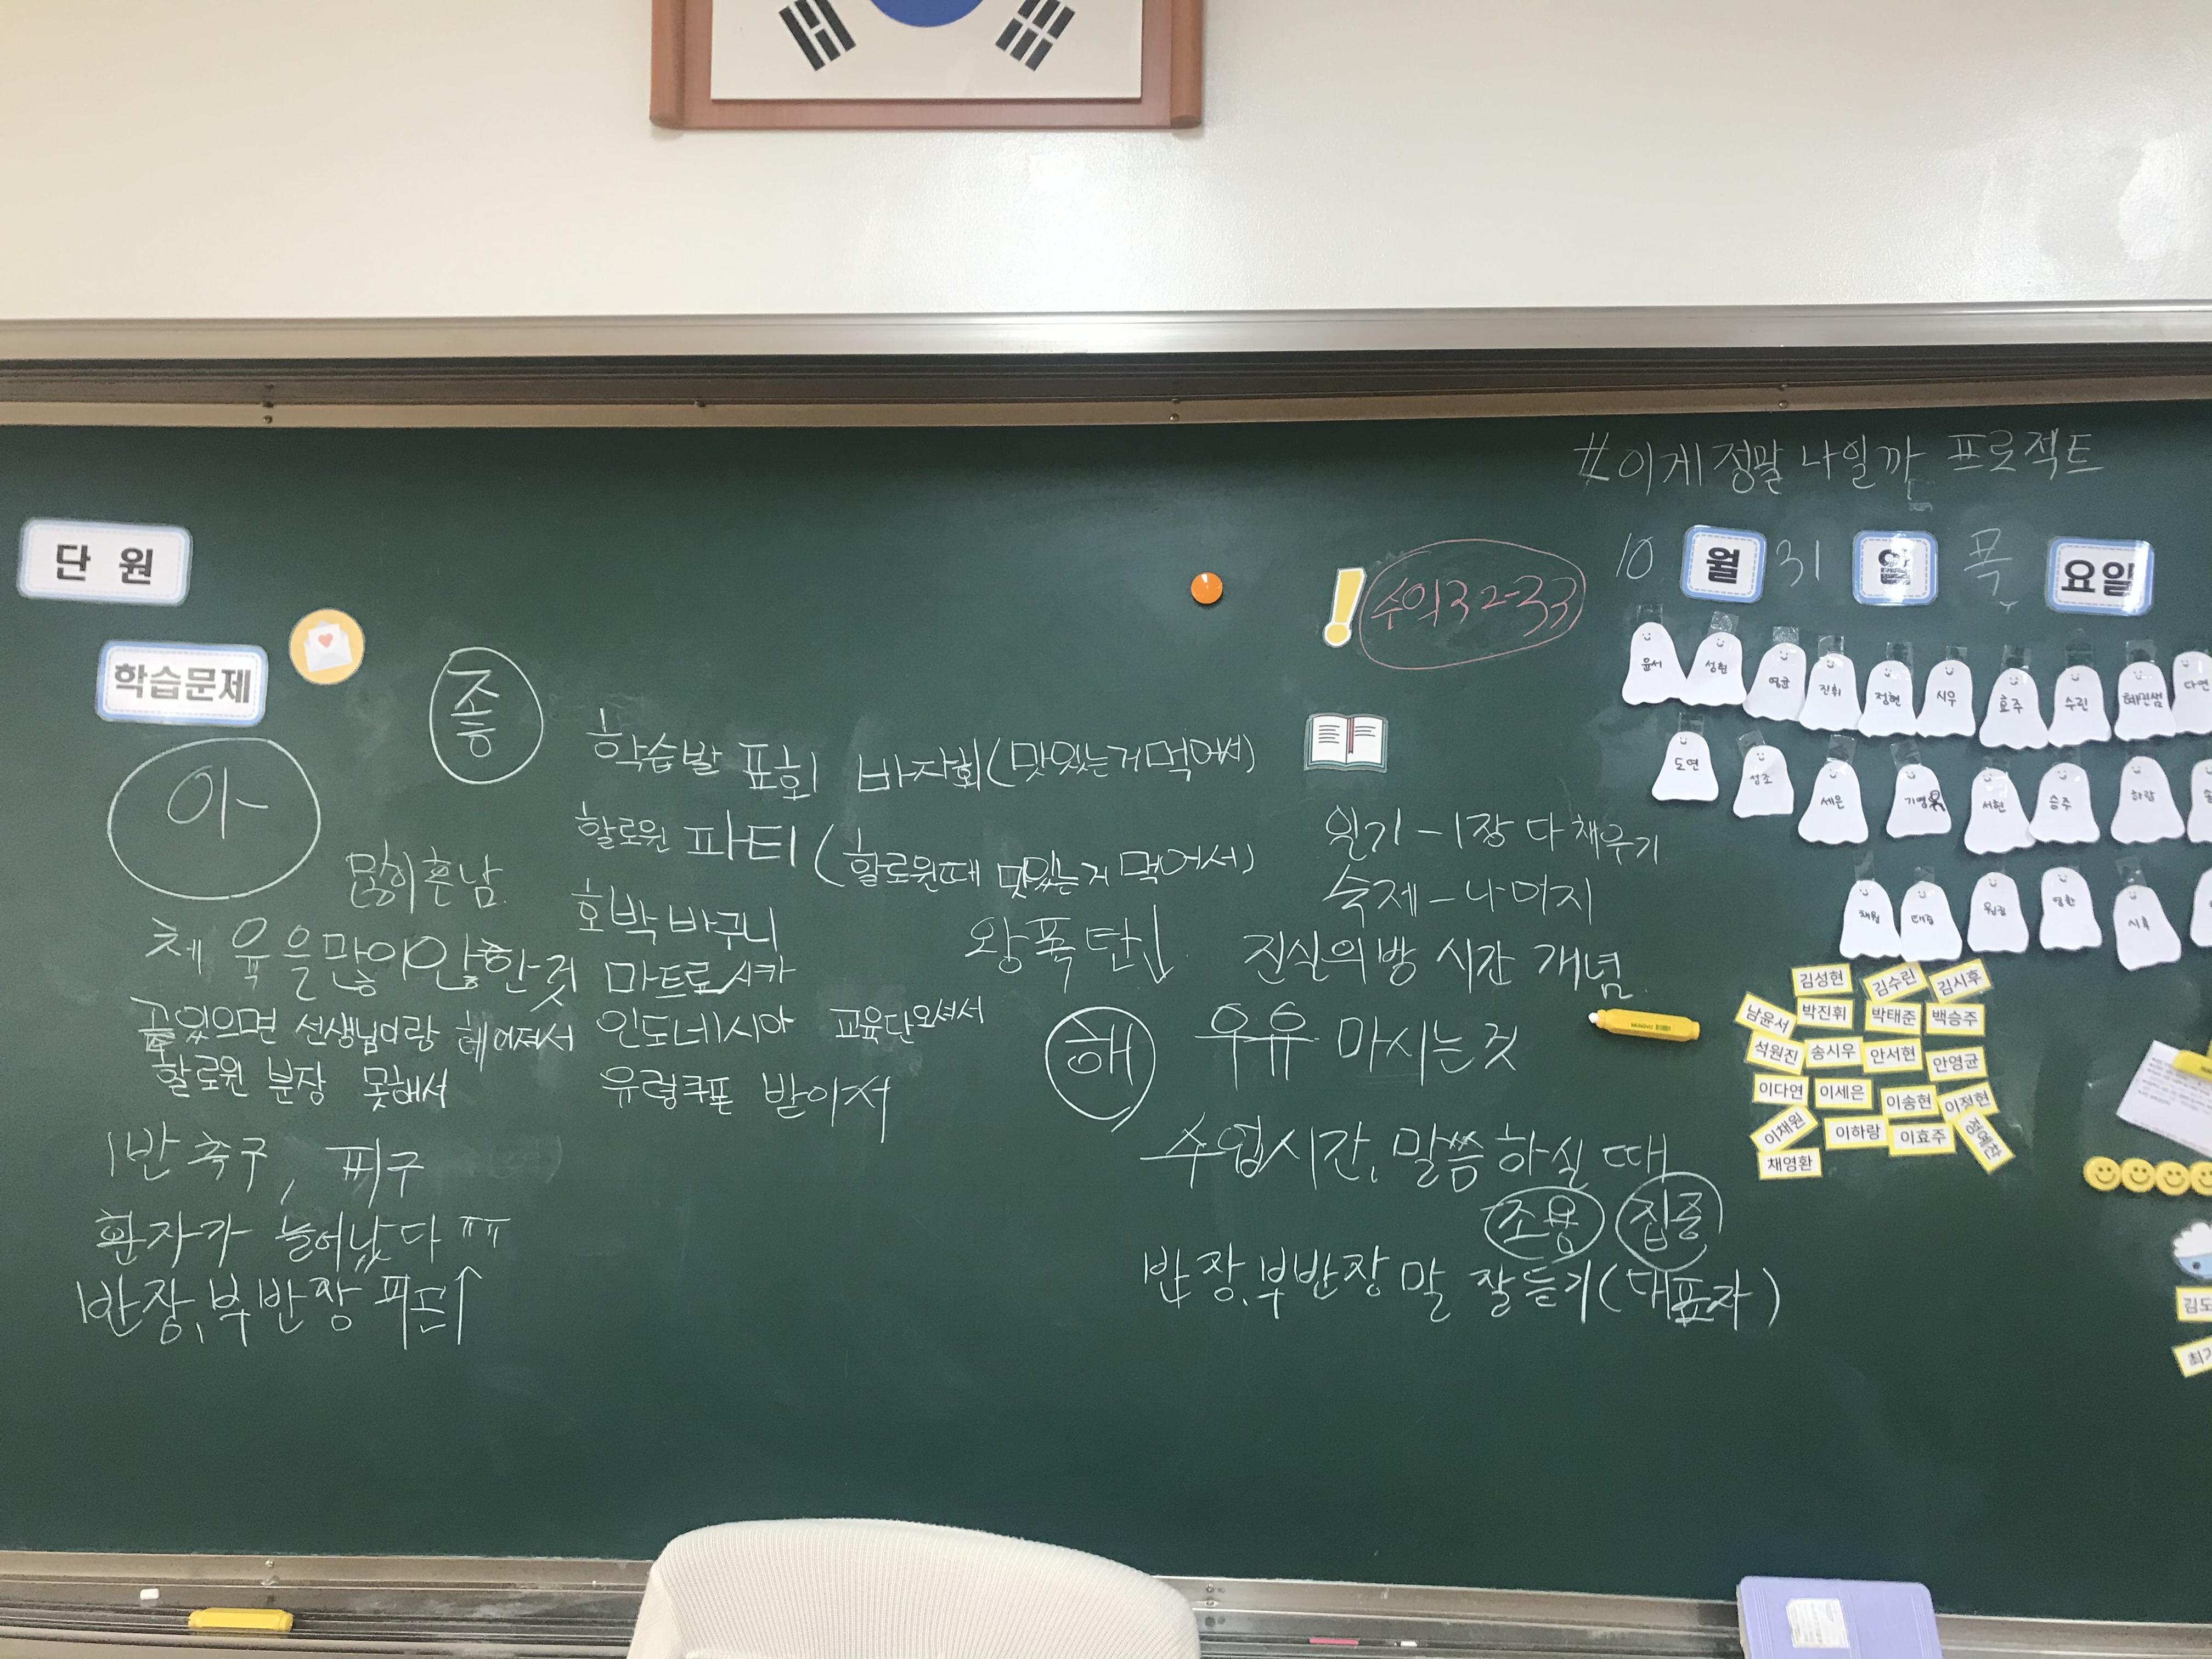 #이게 정말 나일까 프로젝트
10 월 31 일 목 요일
단 원
학습문제
수익 32-33
아
많이 혼남
체육을 많이 안한 것
곧있으면 선생님이랑 헤어져서
할로윈 분장 못해서
1반 축구, 피구
환자가 늘어났다 ㅠㅠ
반장, 부반장 피드↑
좋
학습발표회 바자회(맛있는거 먹어서)
할로윈 파티(할로윈때 맛있는거 먹어서)
호박 바구니
마트료시카
인도네시아 교육단 오셔서
유령쿠폰 받아서
왕폭탄↓
일기-1장 다 채우기
숙제-나머지
진실의 방 시간 개념
해
우유 마시는 것
수업시간, 말씀 하실 때
조용 집중
반장, 부반장 말 잘듣기(대표자)
윤서 성현 영균 진휘 정현 시우 효주 수린 혜민쌤 다연
도연 성조 세은 기명 서현 승주 하람
채원 태준 원진 영환 시후
김성현 김수린 김시후
남윤서 박진휘 박태준 백승주
석원진 송시우 안서현 안영균
이다연 이세은 이송현 이정현
이채원 이하랑 이효주 정예찬
채영환
김도
최기